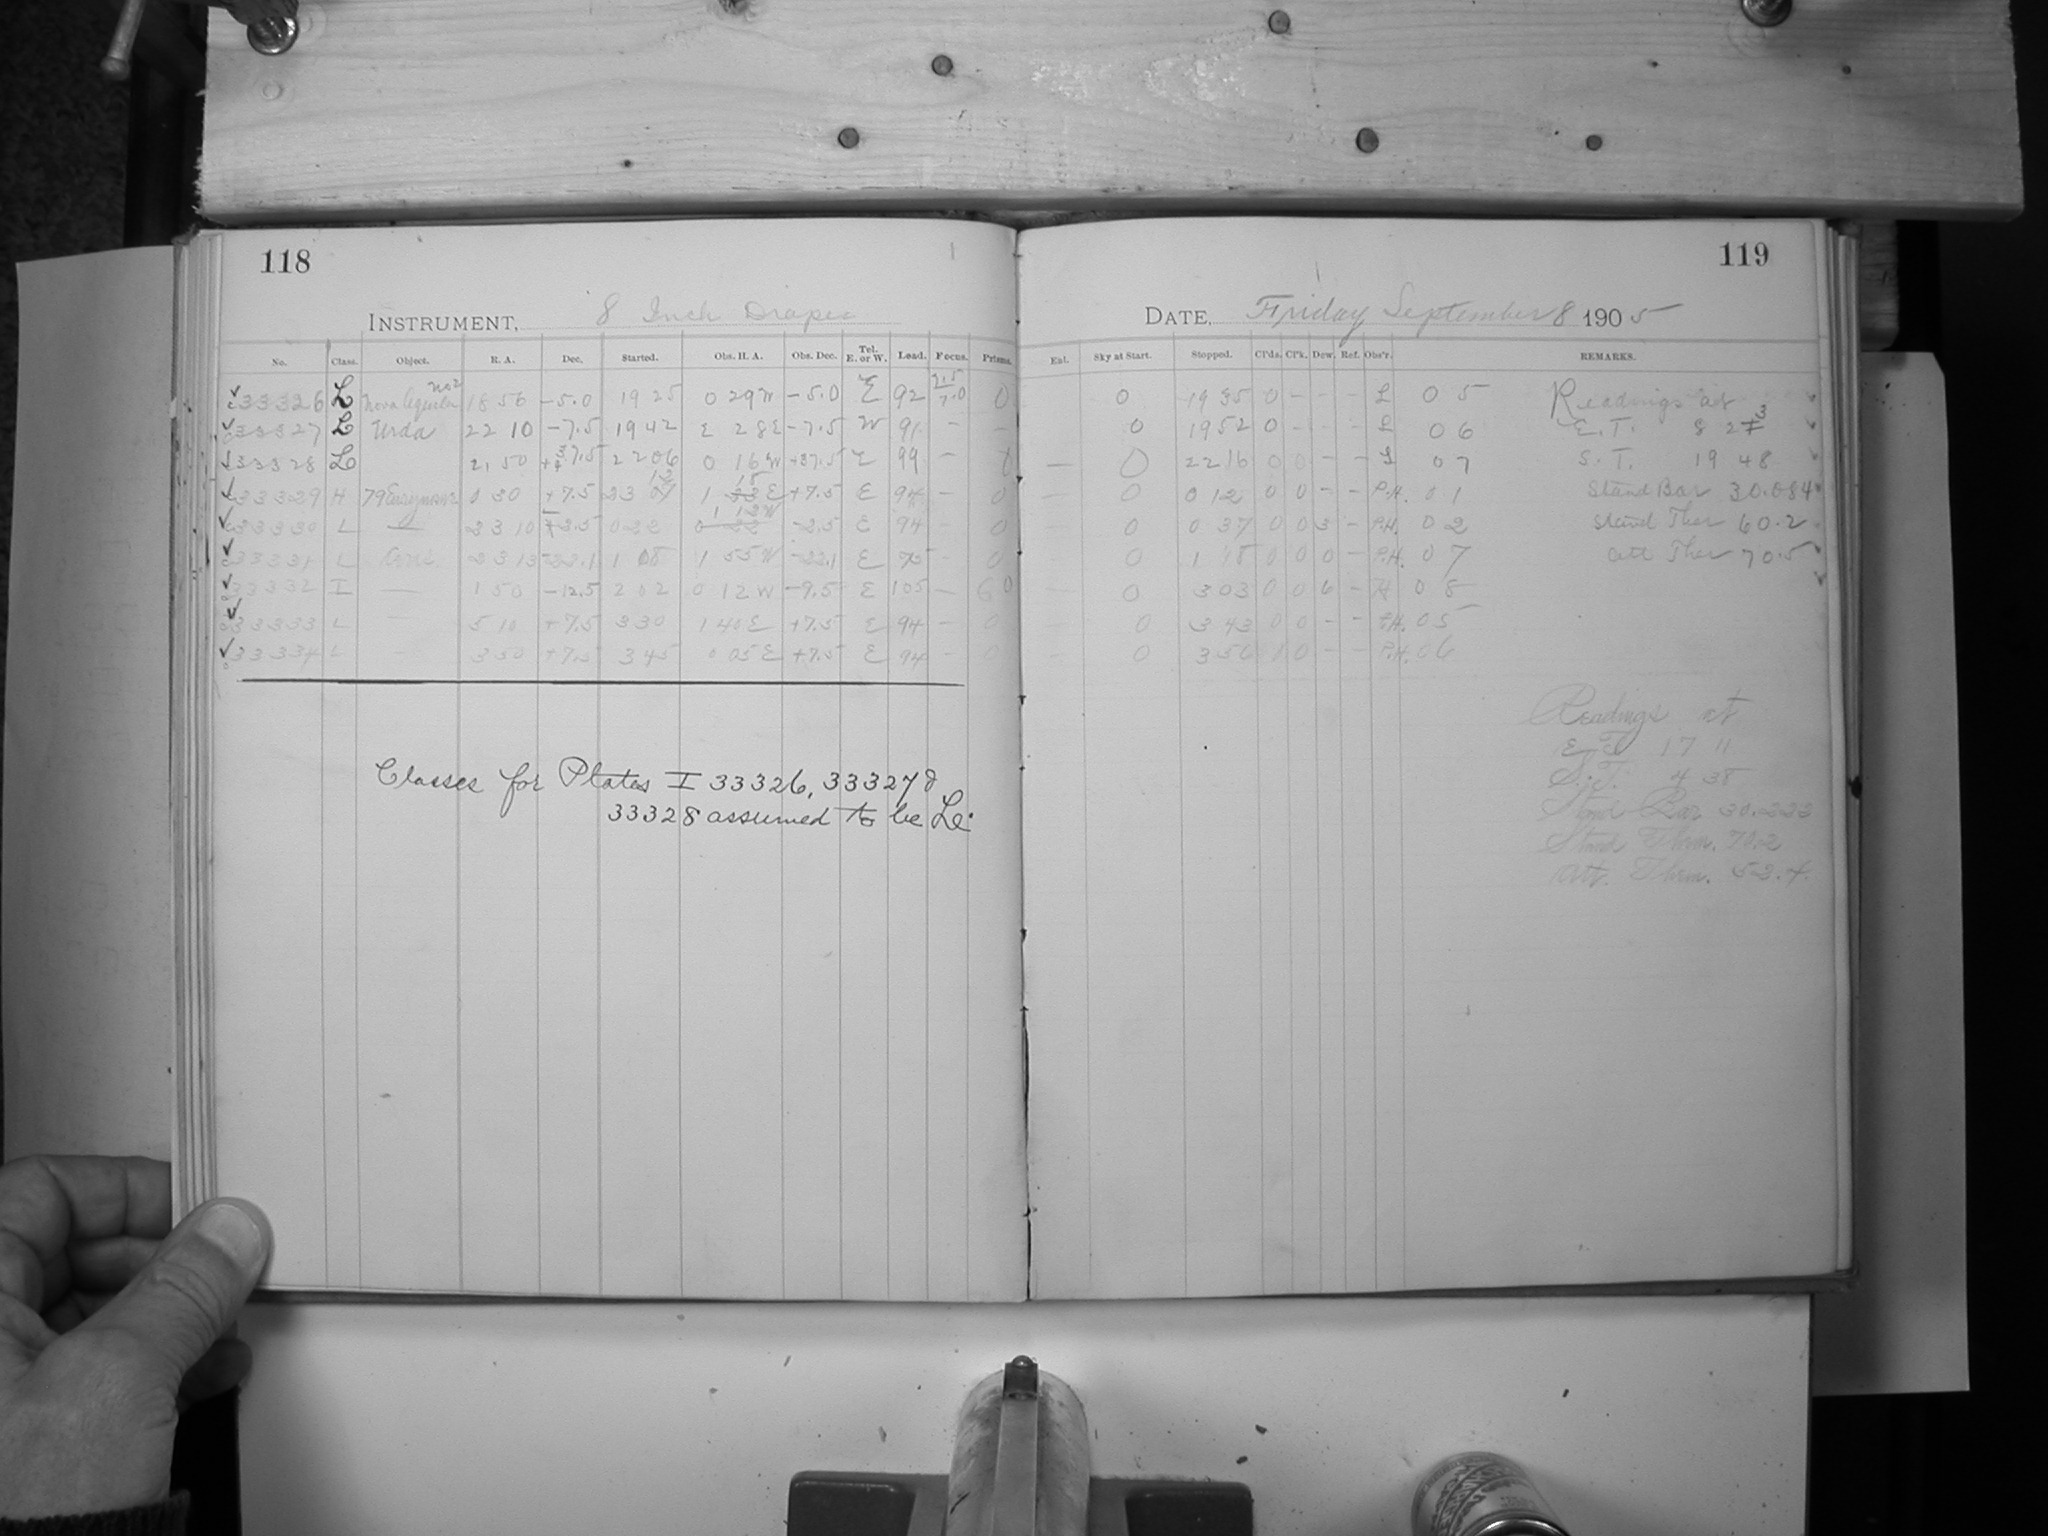 118
INSTRUMENT, 8 Inch Draper
No. Class. Object. R. A. Dec. Started. Obs. H. A. Obs. Dec. Tel. E. or W. Load. Focus. Prisms.
33326 L Nova Aquilae No2 18 56 -5.0 19 25 0 29 W -5.0 E 92 7.0 0
33327 L Urda 22 10 -7.5 19 42 2 28 E -7.5 W 91 - -
33328 L 21 50 +37.5 22 06 0 16 W +37.5 E 99 - 0
33329 H 79 Eurynome 0 30 +7.5 23 1 15 E +7.5 E 94 - 0
33330 L — 23 10 -2.5 0 22 1 12 W -2.5 E 94 - 0
33331 L 23 13 -22.1 1 08 1 55 W -22.1 E - 0
33332 I — 1 50 -12.5 2 02 0 12 W -9.5 E 105 —
33333 L — 5 10 +7.5 3 30 1 40 E +7.5 E 94 - 0
33334 L - 3 50 +7.5 3 45 0 05 E +7.5 E 94 - 0
Classes for Plates I 33326, 33327 &
33328 assumed to be L.
119
DATE, Friday September 8 1905
Ent. Sky at Start. Stopped. Cl'ds. Cl'k. Dew. Ref. Obs'r. REMARKS.
0 19 35 0 - - - L 05 Readings at
0 19 52 0 - - - L 06 E.T. 8 23
— 0 22 16 0 0 - - L 07 S.T. 19 48
— 0 0 12 0 0 - - P.H. 01 Stand Bar 30.084
— 0 0 37 0 0 3 - P.H. 02 Stand Ther 60.2
— 0 1 18 0 0 0 - P.H. 07 Att Ther 70.5
— 0 3 03 0 0 6 - H 08
— 0 3 43 0 0 - - P.H. 05
— 0 3 56 1 0 - - P.H. 06
Readings at
E.T. 17 11
S.T. 4 38
Stand Bar 30.222
Stand Therm. 70.2
Att. Therm. 52.4